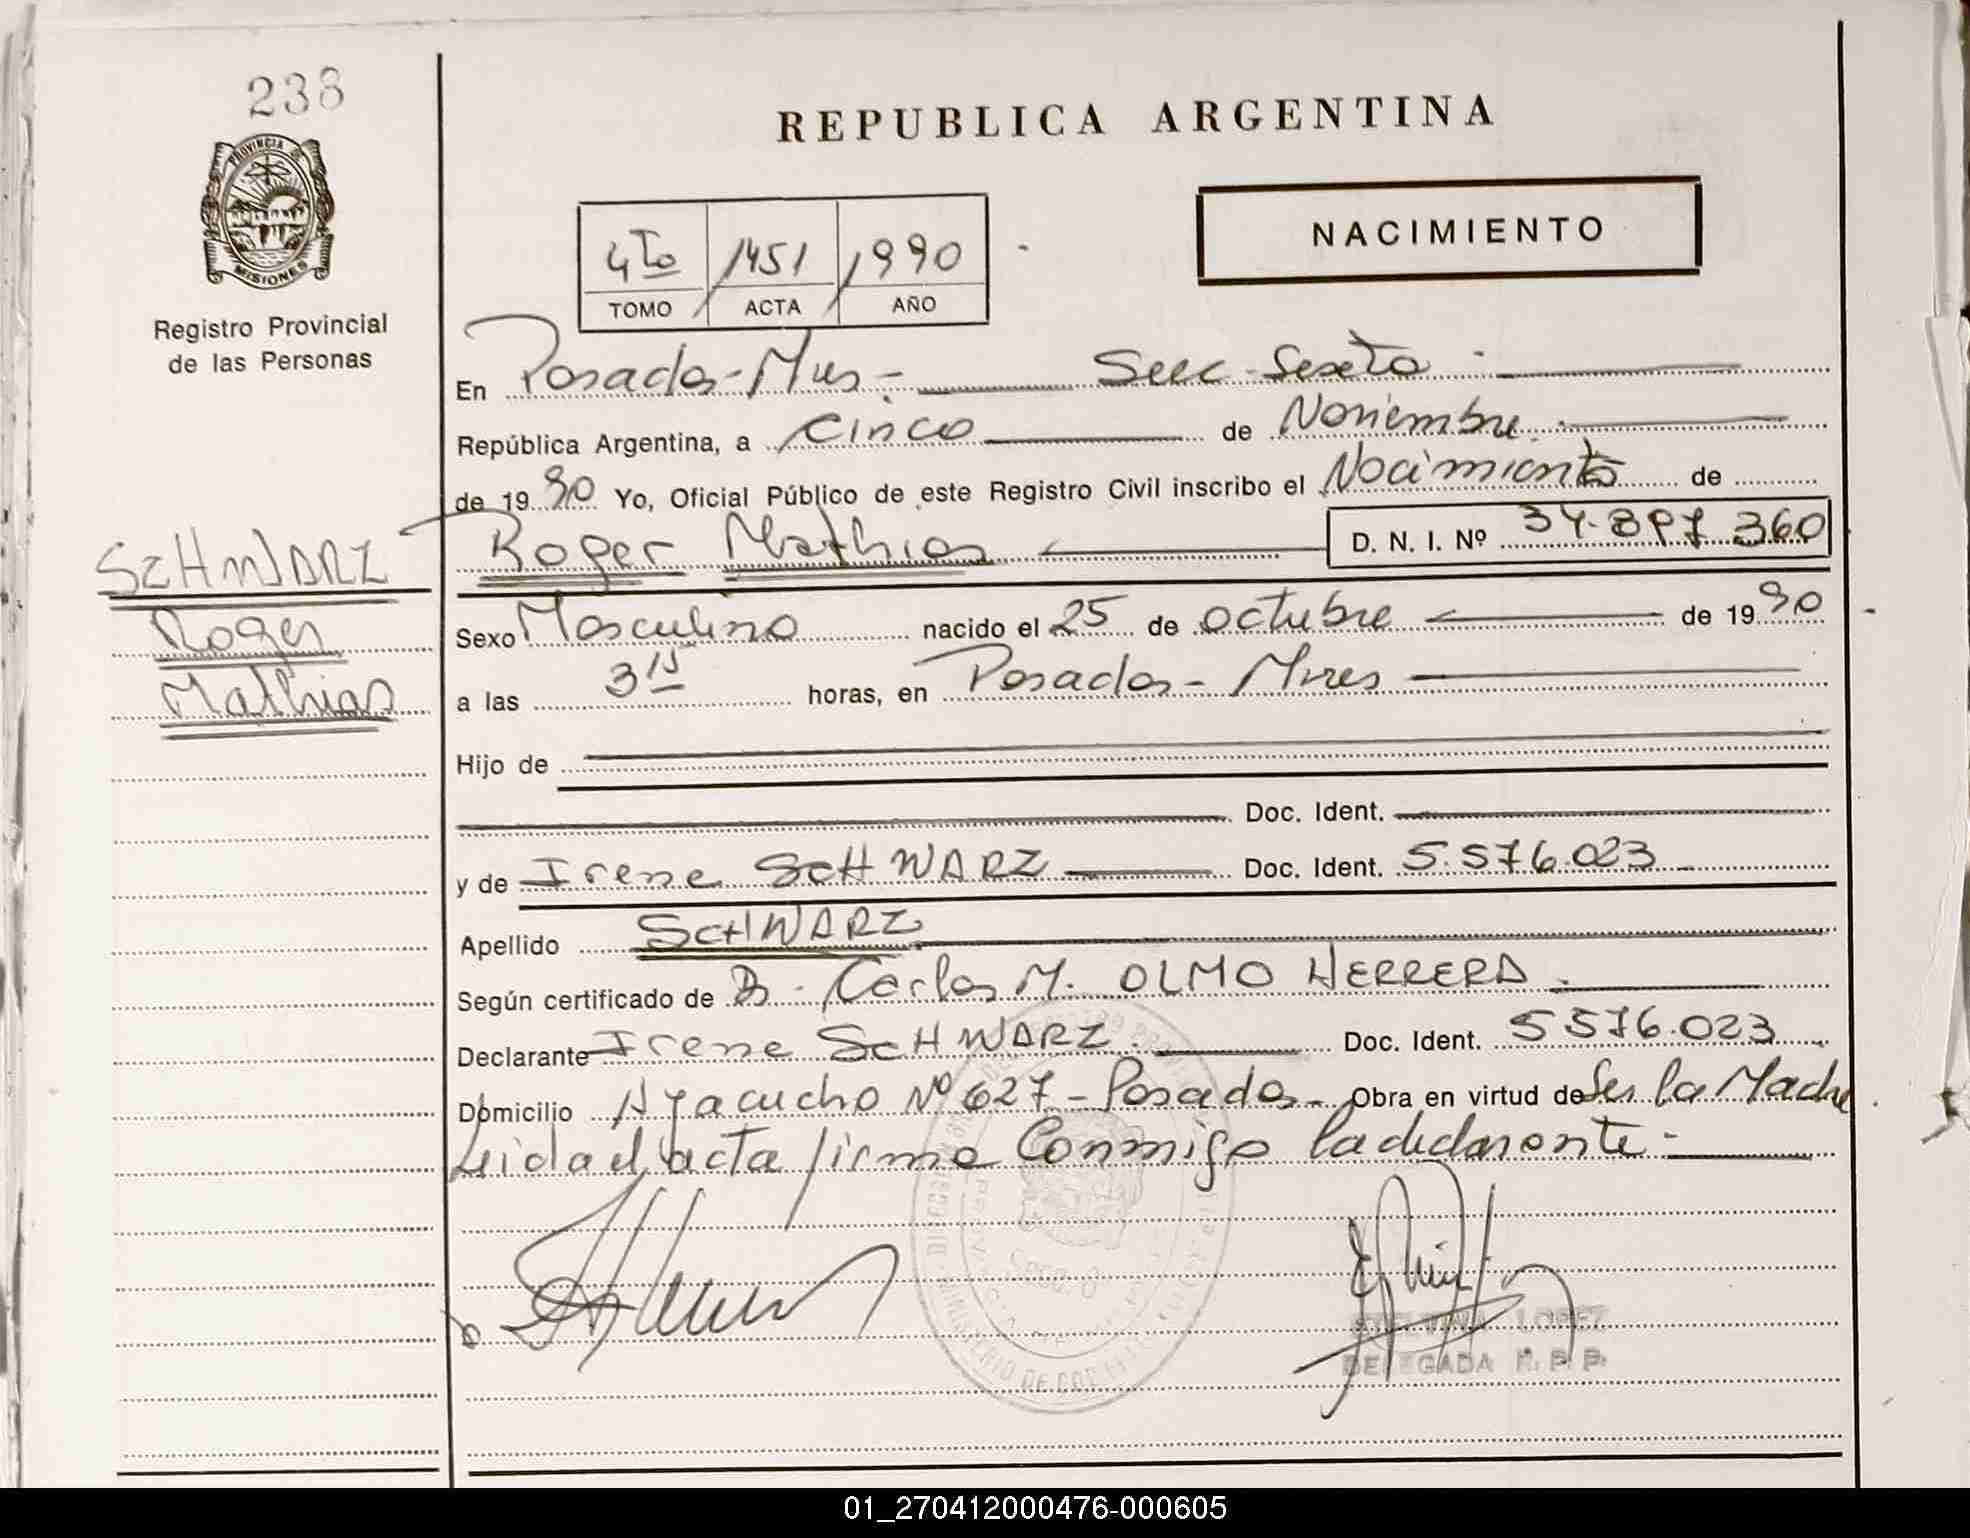 238
PROVINCIA DE
MISIONES
Registro Provincial
de las Personas
SCHWARZ
Roger
Mathias
REPUBLICA ARGENTINA
NACIMIENTO
4To 1451 1990
TOMO ACTA AÑO
En Posadas - Mnes - Secc. Sexta
República Argentina, a Cinco de Noviembre
de 1990 Yo, Oficial Público de este Registro Civil inscribo el Nacimiento de
Roger Mathias D. N. I. Nº 34.897.360
Sexo Masculino nacido el 25 de octubre de 1990
a las 3 horas, en Posadas - Mnes
Hijo de
Doc. Ident.
y de Irene SCHWARZ Doc. Ident. 5.576.023
Apellido SCHWARZ
Según certificado de Carlos M. OLMO HERRERA
Declarante Irene SCHWARZ Doc. Ident. 5576.023
Domicilio Ayacucho Nº 627 - Posadas - Obra en virtud de Ser la Madre
Leida el acta firma Conmigo la declarante
LOPEZ
DELEGADA R. P. P.
01_270412000476-000605